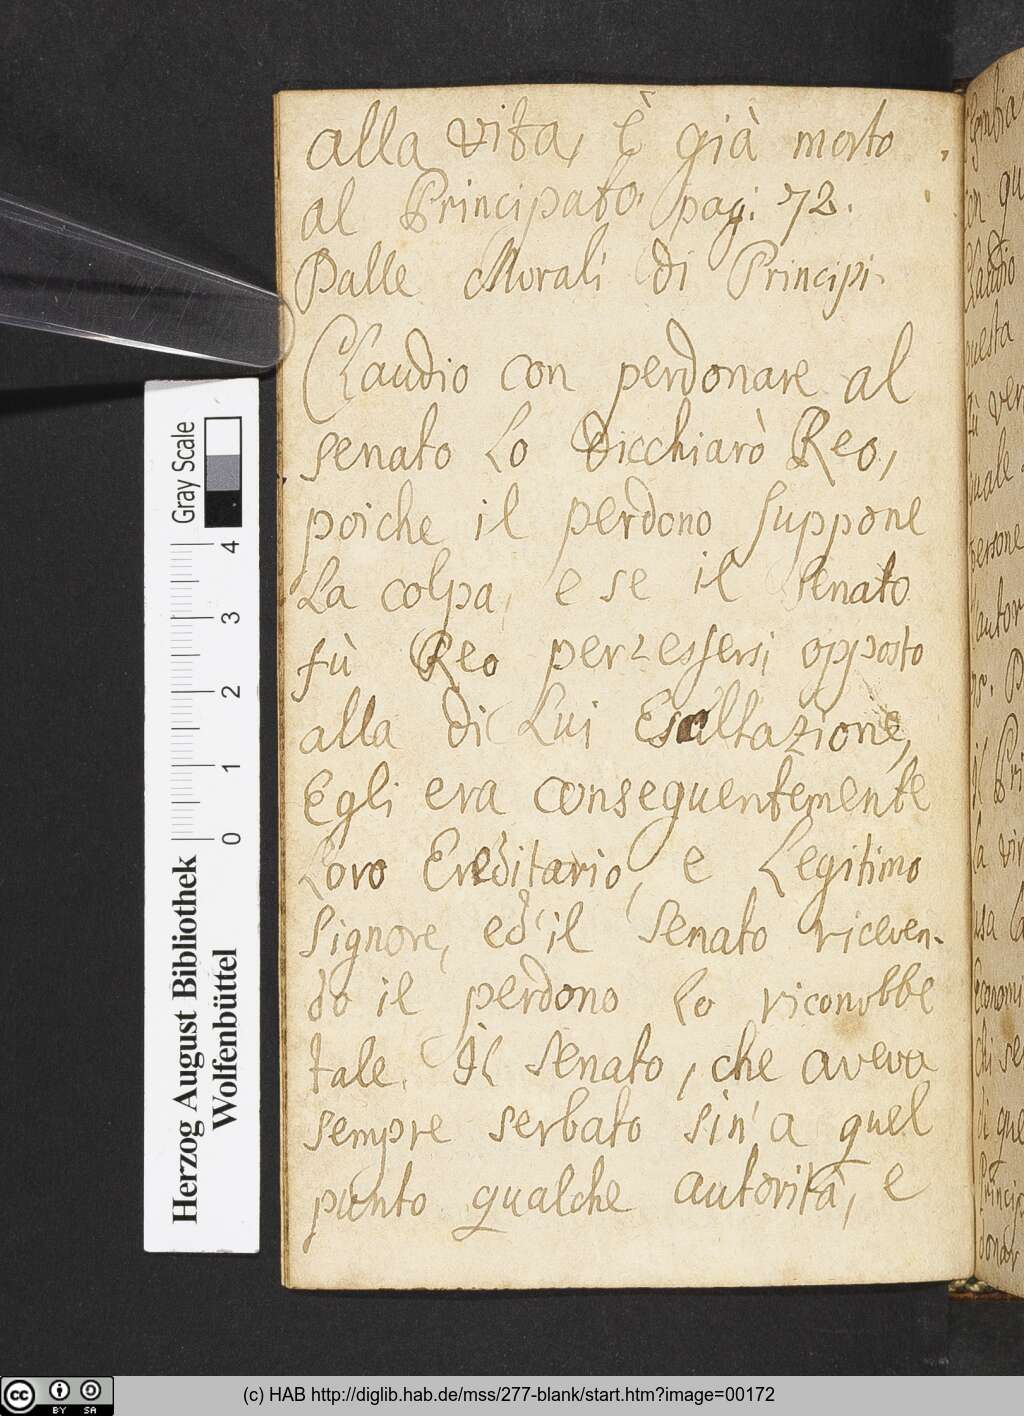 alla vita, è già morto
al Principato. pag. 72.
Dalle Morali di Principi.
Claudio con perdonare al
senato lo dicchiarò Reo,
poiche il perdono suppone
la colpa, e se il senato
fù Reo per essersi opposto
alla di Lui Esaltazione,
Egli era conseguentemente
Loro Ereditario, e Legitimo
Signore, ed il senato riceven-
do il perdono lo riconobbe
tale. Il senato, che aveva
sempre serbato sin' a quel
punto qualche autorità, e
Gray Scale
4
3
2
1
0
Herzog August Bibliothek
Wolfenbüttel
cc BY SA
(c) HAB http://diglib.hab.de/mss/277-blank/start.htm?image=00172